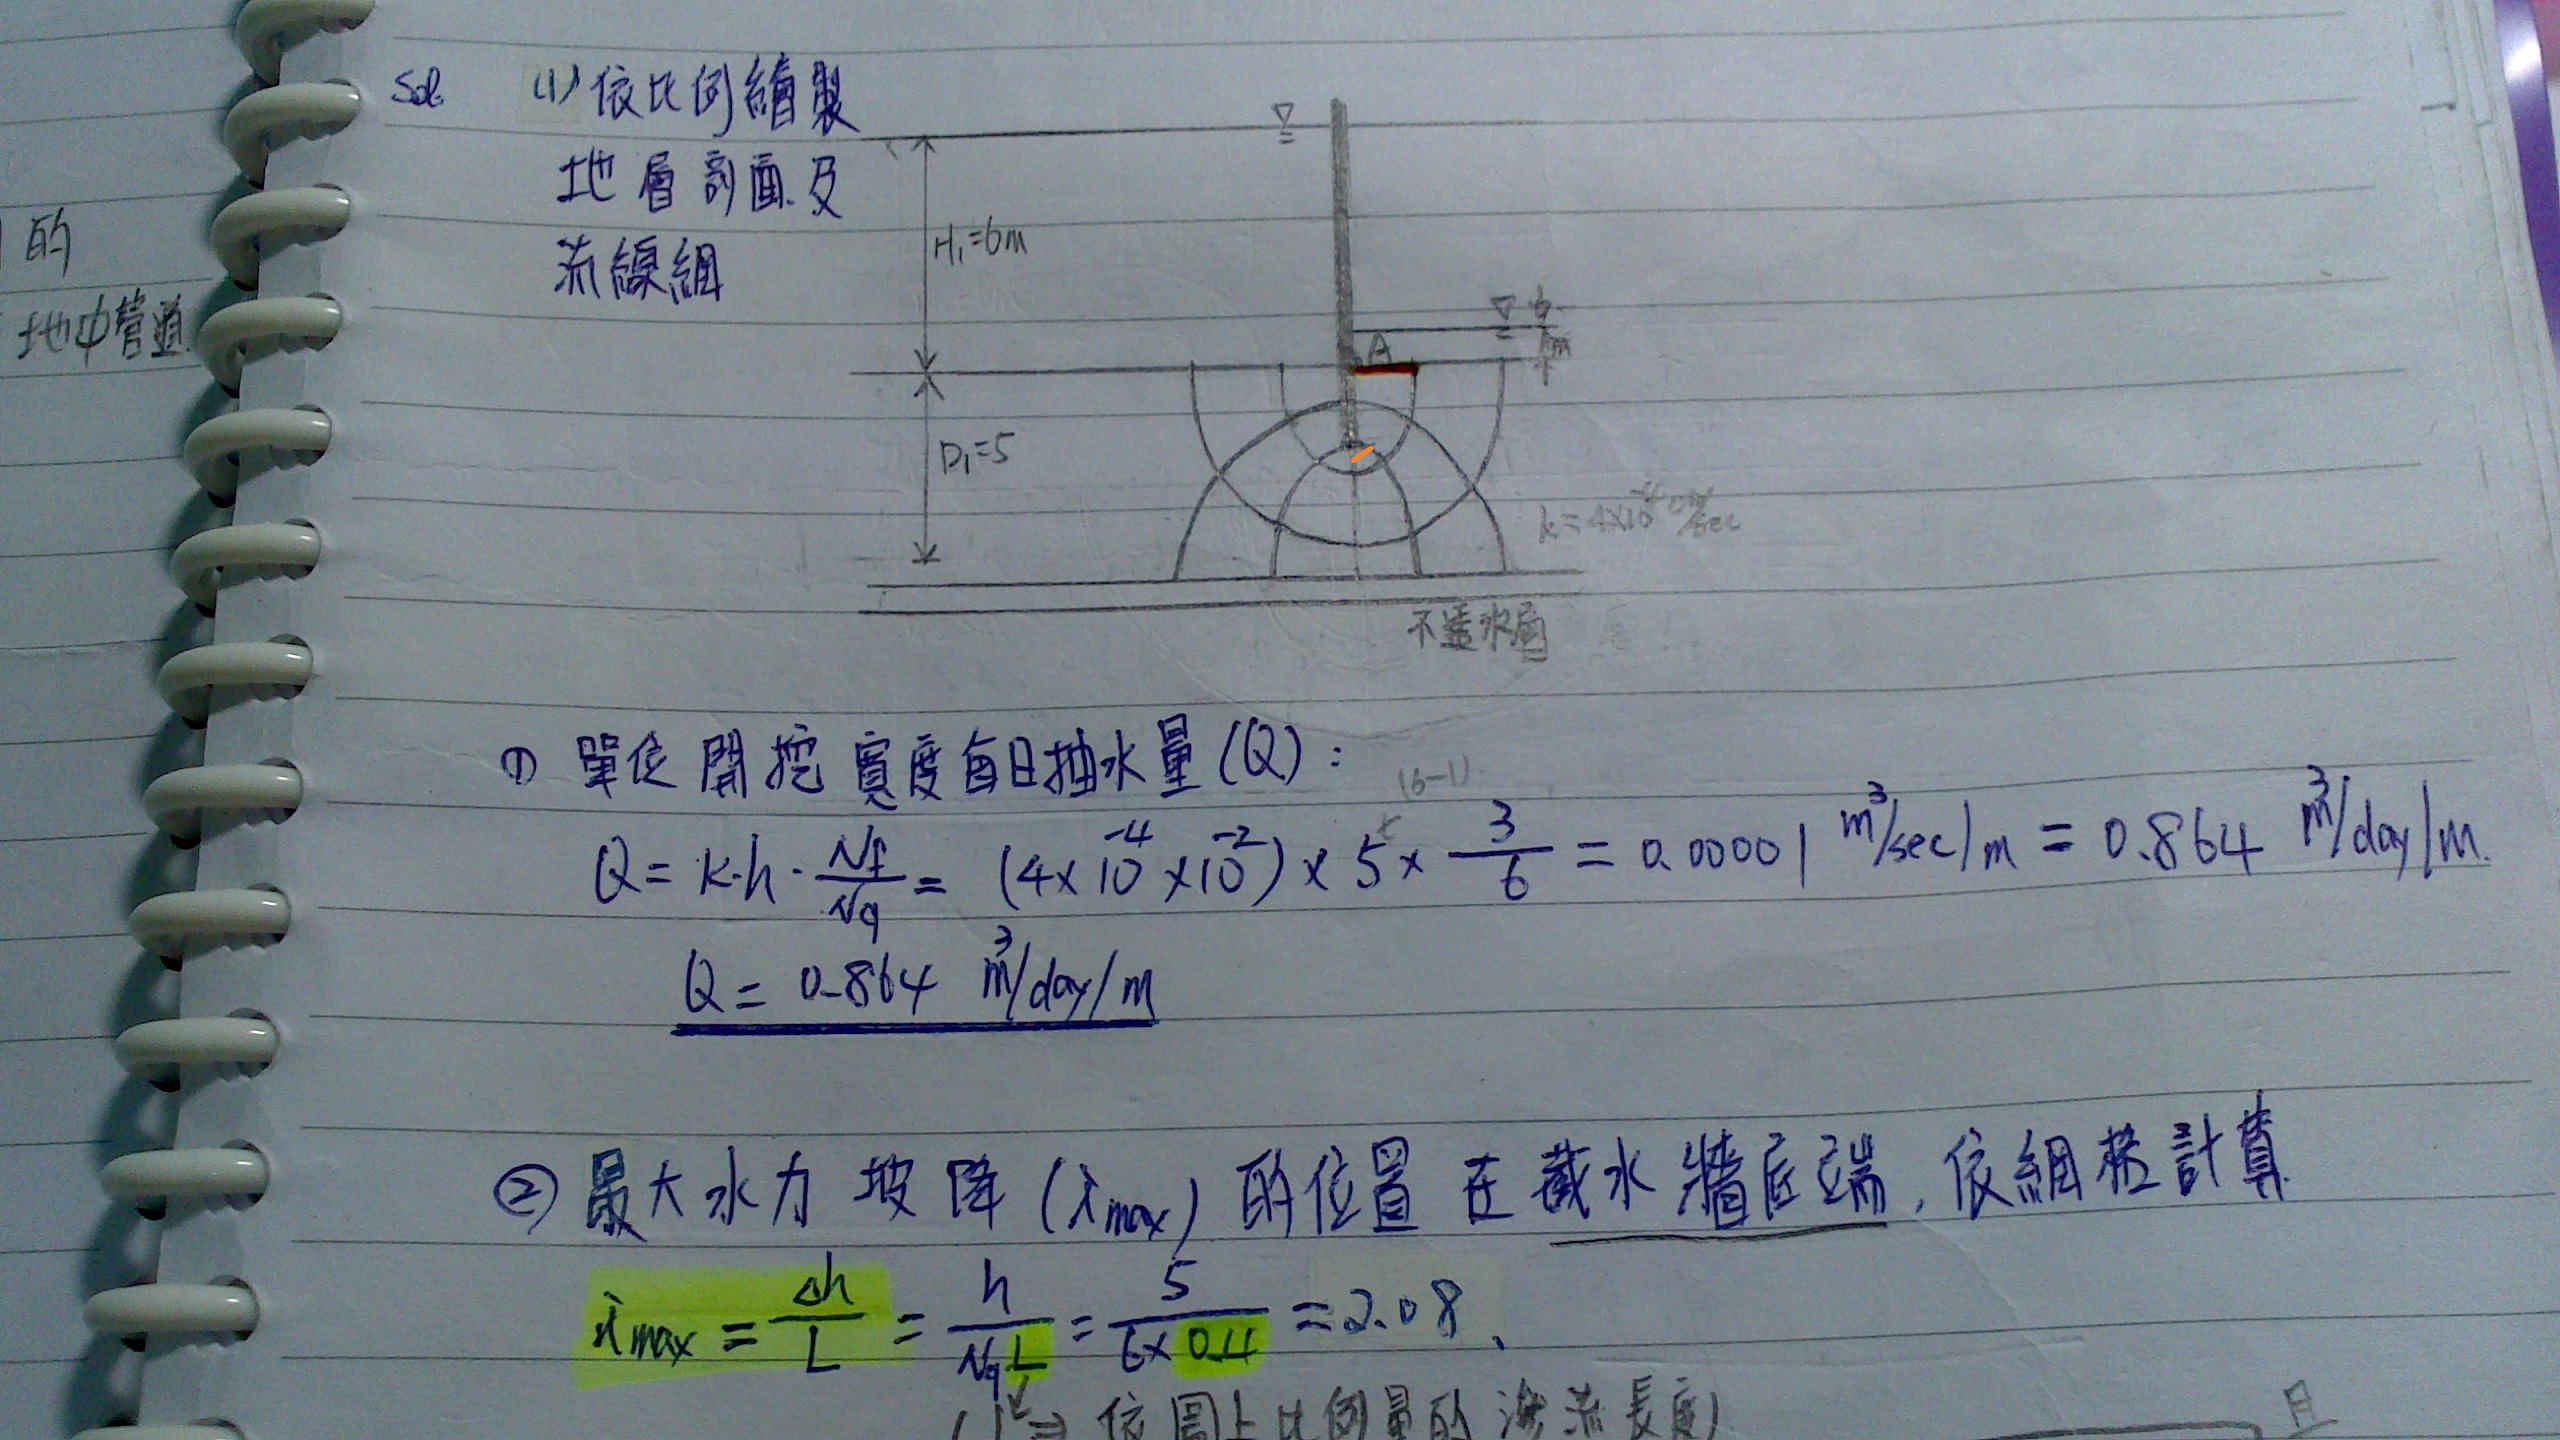 的
地中管道
Sol. (1) 依比例繪製
地層剖面及
流線網
H₁=6m
1m
A
D₁=5
k=4×10⁻⁴ cm/sec
不透水層
① 單位開挖寬度每日抽水量(Q):
(6-1)
Q = k·h·Nf/Nq = (4×10⁻⁴×10⁻²)×5×3/6 = 0.00001 m³/sec/m = 0.864 m³/day/m.
Q = 0.864 m³/day/m
② 最大水力坡降(imax)的位置在截水牆底端,依網格計算
imax = Δh/L = h/NqL = 5/6×0.4 = 2.08、
(L⇒依圖上比例量的滲流長度)